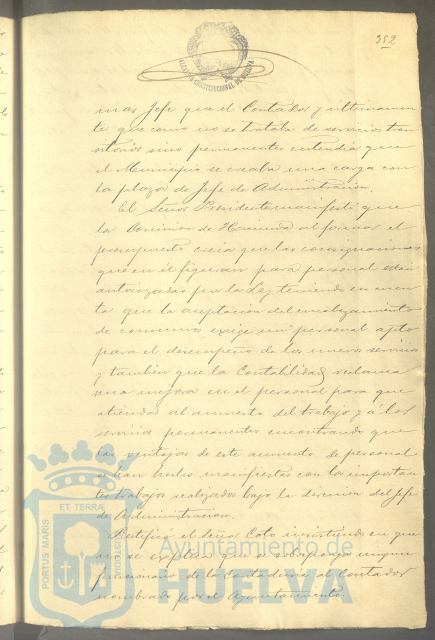 352
ALCALDIA CONSTITUCIONAL DE HUELVA
mas Jefe que el Contador y ultimamen
te que como no se trataba de servicios tran
sitorios sino permanentes entendia que
el Municipio se creaba una carga con
la plaza de Jefe de Administracion.
El Señor Presidente manifestó que
la Comision de Hacienda al formar el
presupuesto creia que las consignaciones
que en el figuran para personal estan
autorizadas por la Ley teniendo en cuen
ta que la aceptacion del encabezamiento
de consumos exige un personal apto
para el desempeño de los nuevos servicios
y tambien que la Contabilidad reclama
una mejora en el personal para que
atienda al aumento del trabajo y a los
servicios permanentes encontrando que
las ventajas de este aumento de personal
se han hecho manifiestas con los importan
tes trabajos realizados bajo la direccion del Jefe
de Administracion.
Rectificó el Señor Coto insistiendo en que
no se explica que se
funciones de la Contaduria al Contador
nombrado por el Ayuntamiento.
PORTUS MARIS ET TERRAE CUSTODIA
Ayuntamiento de
HUELVA